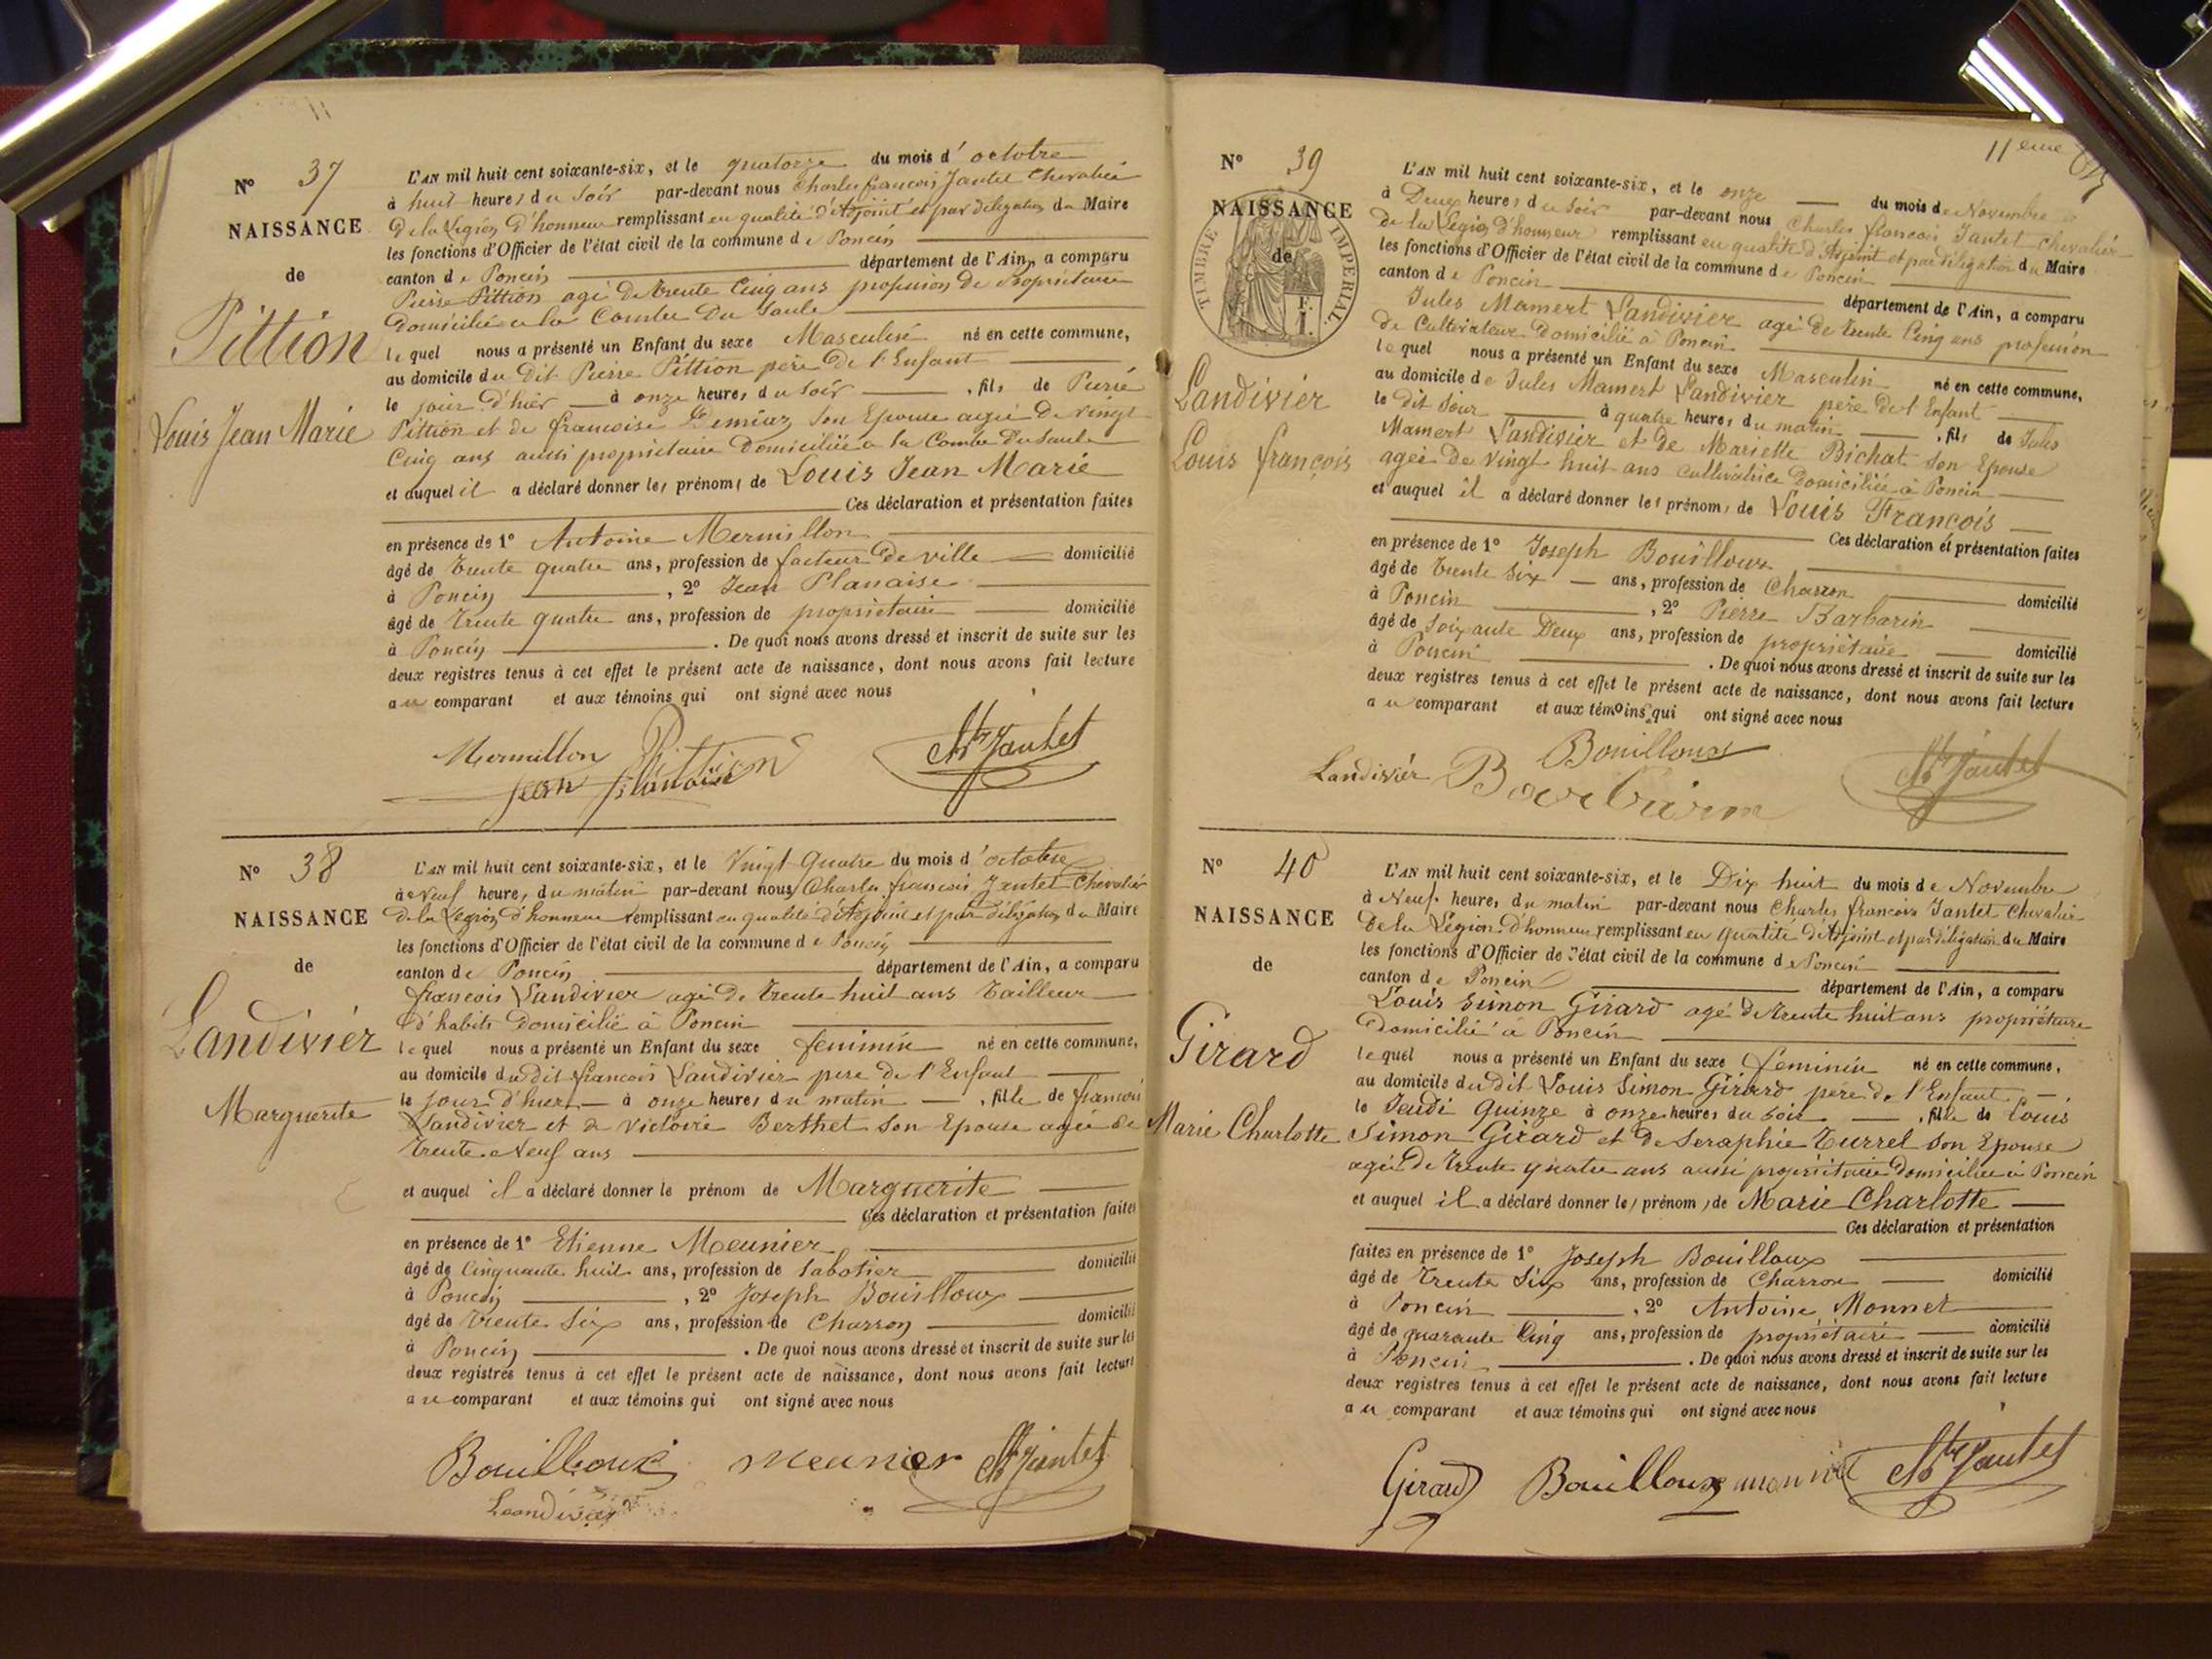 N° 37
NAISSANCE
de
Pittion
Louis Jean Marie
L'AN mil huit cent soixante-six, et le quatorze du mois d'octobre
à huit heures du soir par-devant nous Charles françois Jantet Chevalier
de la Légion d'honneur remplissant en qualité d'Adjoint et par délégation du Maire
les fonctions d'Officier de l'état civil de la commune de Poncin
canton de Poncin département de l'Ain, a comparu
Pierre Pittion agé de trente Cinq ans profession de Propriétaire
domicilié a la Combe du Saule
lequel nous a présenté un Enfant du sexe Masculin né en cette commune,
au domicile du dit Pierre Pittion père de l'Enfant
le jour d'hier à onze heures du soir , fils de Pierre
Pittion et de francoise son Epouse agée de vingt
Cinq ans aussi propriétaire domiciliée a la Combe du Saule
et auquel il a déclaré donner les prénoms de Louis Jean Marie
Ces déclaration et présentation faites
en présence de 1° Antoine Mermillon
âgé de trente quatre ans, profession de facteur de ville domicilié
à Poncin , 2° Jean Planaise
âgé de trente quatre ans, profession de propriétaire domicilié
à Poncin . De quoi nous avons dressé et inscrit de suite sur les
deux registres tenus à cet effet le présent acte de naissance, dont nous avons fait lecture
au comparant et aux témoins qui ont signé avec nous
Mermillon Pittion Ch Jantet
Jean Planaise
N° 38
NAISSANCE
de
Landivier
Marguerite
L'AN mil huit cent soixante-six, et le Vingt Quatre du mois d'octobre
à Neuf heures du matin par-devant nous Charles francois Jantet Chevalier
de la Légion d'honneur remplissant en qualité d'Adjoint et par délégation du Maire
les fonctions d'Officier de l'état civil de la commune de Poncin
canton de Poncin département de l'Ain, a comparu
francois Landivier agé de trente huit ans Tailleur
d'habits domicilié à Poncin
lequel nous a présenté un Enfant du sexe feminin né en cette commune,
au domicile du dit francois Landivier pere de l'Enfant
le jour d'hier à onze heures du matin , fille de francois
Landivier et de Victoire Berthet son Epouse agée de
trente Neuf ans
et auquel il a déclaré donner le prénom de Marguerite
Ces déclaration et présentation faites
en présence de 1° Etienne Meunier
âgé de Cinquante huit ans, profession de Sabotier domicilié
à Poncin , 2° Joseph Bouilloux
âgé de trente Six ans, profession de Charron domicilié
à Poncin . De quoi nous avons dressé et inscrit de suite sur les
deux registres tenus à cet effet le présent acte de naissance, dont nous avons fait lecture
au comparant et aux témoins qui ont signé avec nous
Bouilloux meunier Ch Jantet
Landivier
11 eme
N° 39
NAISSANCE
de
TIMBRE IMPERIAL
Landivier
Louis françois
L'AN mil huit cent soixante-six, et le onze du mois de Novembre
à Deux heures du soir par-devant nous Charles francois Jantet chevalier
de la Légion d'honneur remplissant en qualité d'Adjoint et par délégation du Maire
les fonctions d'Officier de l'état civil de la commune de Poncin
canton de Poncin département de l'Ain, a comparu
Jules Mamert Landivier agé de trente Cinq ans profession
de Cultivateur domicilié à Poncin
lequel nous a présenté un Enfant du sexe Masculin né en cette commune,
au domicile de Jules Mamert Landivier père de l'Enfant
le dit jour à quatre heures du matin , fils de Jules
Mamert Landivier et de Mariette Bichat son Epouse
agée de Vingt huit ans cultivatrice domiciliée à Poncin
et auquel il a déclaré donner les prénoms de Louis François
Ces déclaration et présentation faites
en présence de 1° Joseph Bouilloux
âgé de trente Six ans, profession de Charron domicilié
à Poncin , 2° Pierre Barbarin
âgé de Soixante Deux ans, profession de propriétaire domicilié
à Poncin . De quoi nous avons dressé et inscrit de suite sur les
deux registres tenus à cet effet le présent acte de naissance, dont nous avons fait lecture
au comparant et aux témoins qui ont signé avec nous
Landivier Bouilloux Ch Jantet
N° 40
NAISSANCE
de
Girard
Marie Charlotte
L'AN mil huit cent soixante-six, et le Dix huit du mois de Novembre
à Neuf heures du matin par-devant nous Charles francois Jantet Chevalier
de la Légion d'honneur remplissant en qualité d'Adjoint et par délégation du Maire
les fonctions d'Officier de l'état civil de la commune de Poncin
canton de Poncin département de l'Ain, a comparu
Louis Simon Girard agé de trente huit ans propriétaire
domicilié à Poncin
lequel nous a présenté un Enfant du sexe féminin né en cette commune,
au domicile du dit Louis Simon Girard père de l'Enfant
le Jeudi Quinze à onze heures du soir , fille de Louis
Simon Girard et de Seraphie Turrel son Epouse
agée de trente quatre ans aussi propriétaire domiciliée à Poncin
et auquel il a déclaré donner les prénoms de Marie Charlotte
Ces déclaration et présentation
faites en présence de 1° Joseph Bouilloux
âgé de trente Six ans, profession de Charron domicilié
à Poncin , 2° Antoine Monnet
âgé de quarante Cinq ans, profession de propriétaire domicilié
à Poncin . De quoi nous avons dressé et inscrit de suite sur les
deux registres tenus à cet effet le présent acte de naissance, dont nous avons fait lecture
au comparant et aux témoins qui ont signé avec nous
Girard Bouilloux monnet Ch Jantet